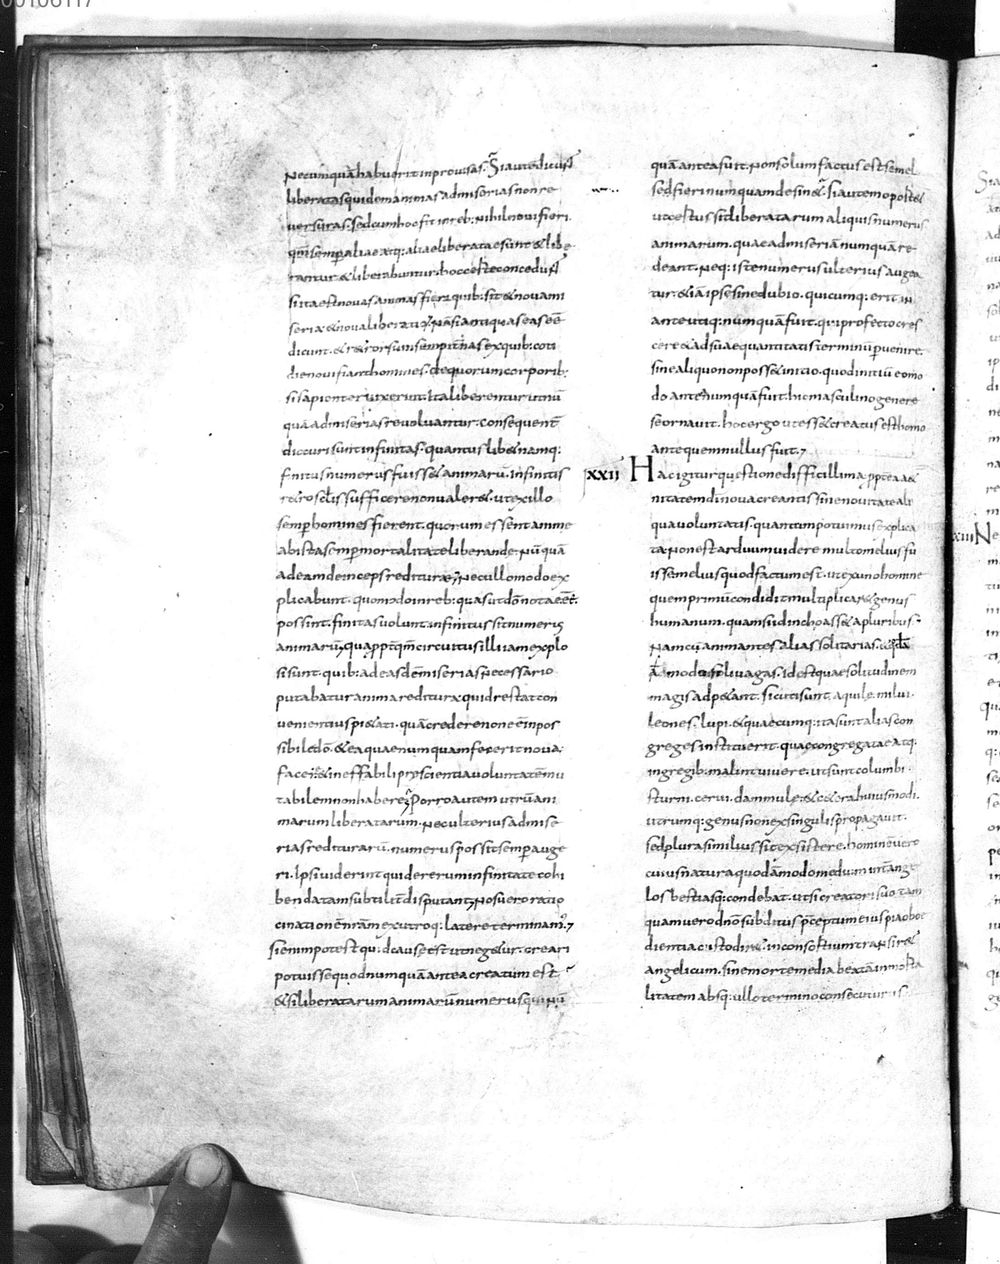 00106117
necumquā habuerit inprovisas. Si autē dicunt
liberatas quidem animas ad miserias non re
versuras. sed cum hoc fit in reb; nihil novi fieri.
qm̄ semper aliae atq; aliae liberatae sunt & libe
rantur & liberabuntur. hoc certe concedunt
si ita est novas animas fieri quib; sit & nova mi
seria & nova liberatio. Nā si antiquas eas eē
dicunt. & retrorsum sempiternas ex quib; coti
die novi fiant homines. de quorum corporib;
si sapienter vixerint. Ita liberentur ut nū
quā ad miserias revolvantur. consequent
dicturi sunt infinitas. quantuslib& namq;
finitus numerus fuiss& animarū. Infinitis
retro sclis sufficere non valer&. ut ex illo
semp homines fierent. quorum essent anime
ab ista semp mortalitate liberande. nūquā
ad eam deinceps rediturae. Nec ullo modo ex
plicabunt. quomodo in reb; quas ut dō notae eēt
possint. finitas volunt. infinitus sit numerus
animarū. quappt qm̄ circuitus illi iam explo
si sunt. quib; ad easdē miserias necessario
putabatur anima reditura. quid restat con
venientius pi&ati. quā credere non eē inpos
sibile dō. & ea quae numquam fecerit nova
facere. & ineffabili prescientia voluntatē mu
tabilem non habere. Porro autem utrū ani
marum liberatarum. nec ulterius ad mise
rias rediturarū. numerus possit semp auge
ri. Ipsi viderint qui de rerum infinitate cohi
benda tam subtilit disputant. Nos vero ratio
cinationē nrām ex utroq; latere terminam;
si enim potest. quid causae est ut neg&ur. creari
potuisse quod numquā antea creatum est
& si liberatarum animarū numerus qui nū
quā antea fuit. non solum factus est semel
sed fieri numquam desin&. si autem oport&
ut certus sit liberatarum aliquis numerus
animarum. quae ad miseriā numquā re
deant. neq; iste numerus ulterius augea
tur. & iā ipse sine dubio. quicumq; erit
ante utiq; numquā fuit. qui profecto cres
cere & ad suae quantitatis terminū pvenire
sine aliquo non poss& initio. quod initiū eo mo
do ante numquā fuit. hic masculino genere
se ornavit. hoc ergo ut ess& creatus est homo
ante quem nullus fuit.
XXII Hac igitur questione difficillima ppter aet
nitatem di nova creantis sine novitate ali
qua voluntatis. quantum potuimus explica
ta. non est arduum videre multo melius fu
isse melius quod factum est. ut ex uno homine
quem primū condidit multiplicar& genus
humanum. quam si id inchoass& a pluribus
Nam cū animantes alias solitarias. & qdā
modo solivagas. Id est quae solitudinem
magis adp&ant. sicuti sunt. aquile. milvi.
leones. lupi. & quaecumq; ita sunt. alias con
greges instituerit. quae congregatae atq;
in gregib; malint vivere. ut sunt columbi.
sturni. cervi. dammule. & c&era huiusmodi.
utrumq; genus non ex singulis propagavit.
sed plura simul iussit existere. hominē vero
cuius natura quodāmodo mediam int ange
los bestiasq; condebat. ut si creatori suo tam
quam vero dnō subditus pceptum eius pia oboe
dientia custodir&. in consortium transir&
angelicum. sine morte media beatā inmorta
litatem absq; ullo termino consecuturus.